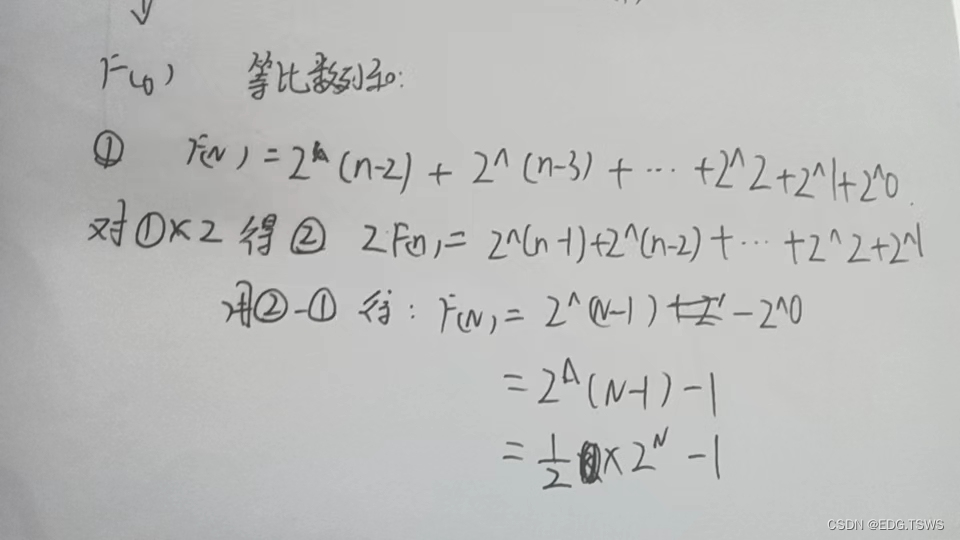 F(0) 等比数列和:
① F(N) = 2^(n-2) + 2^(n-3) + ... +2^2+2^1+2^0.
对①×2 得 ② 2F(n) = 2^(n-1)+2^(n-2)+ ... +2^2+2^1
用②-① 得: F(N) = 2^(N-1) - 2^0
= 2^(N-1) - 1
= 1/2 × 2^N - 1
CSDN @EDG.TSWS